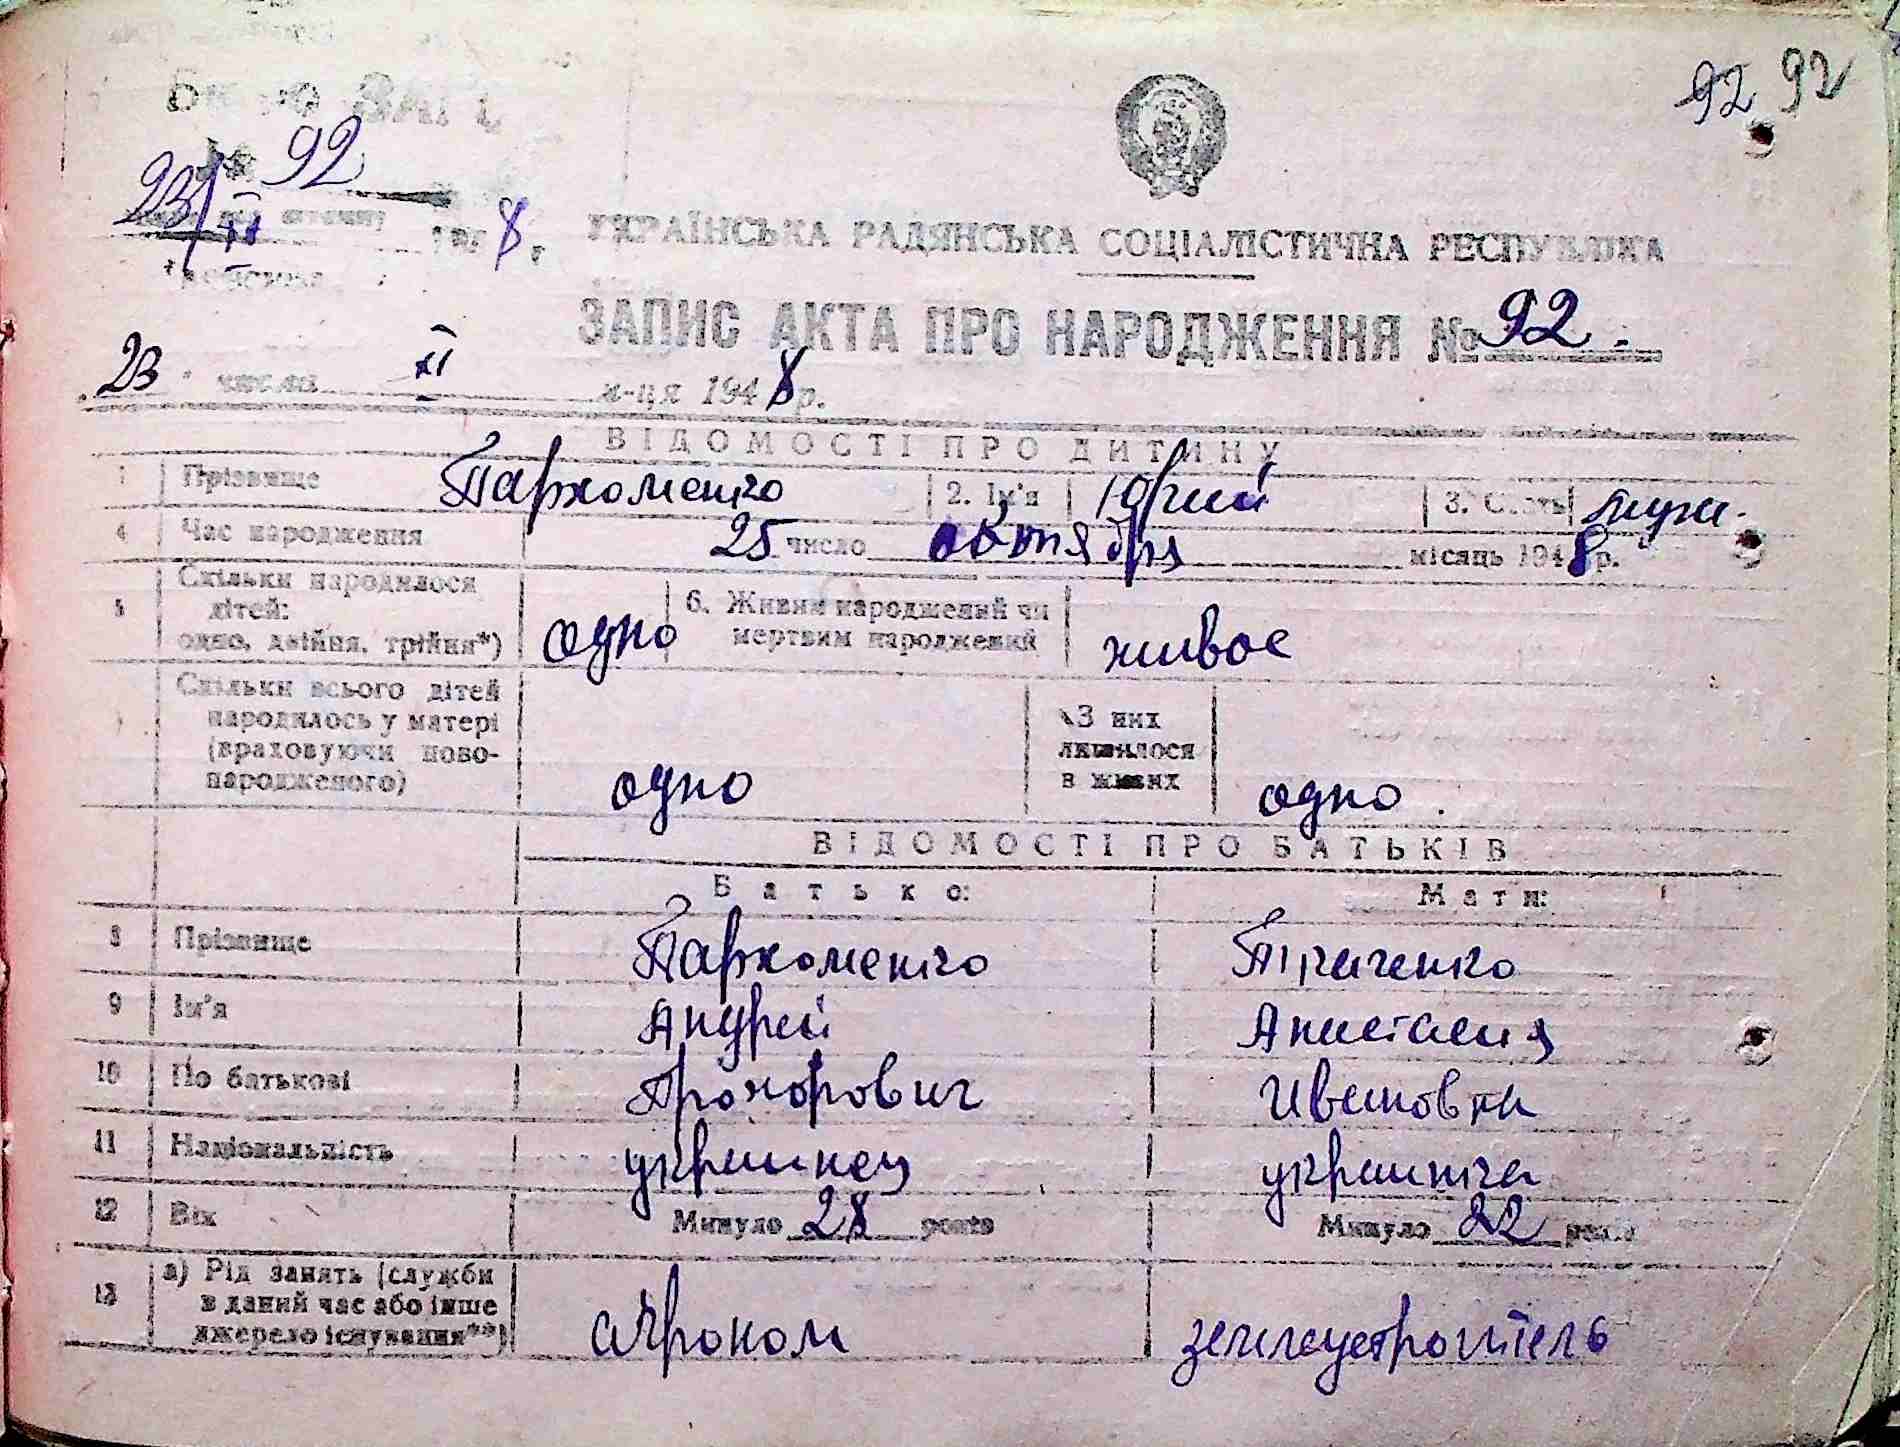 92 92
Бюро ЗАГС
№ 92
23/XI 1948 г.
УКРАЇНСЬКА РАДЯНСЬКА СОЦІАЛІСТИЧНА РЕСПУБЛІКА
ЗАПИС АКТА ПРО НАРОДЖЕННЯ № 92.
23 числа XI м-ця 1948 р.
ВІДОМОСТІ ПРО ДИТИНУ
1 Прізвище Пархоменко 2. Ім'я Юрий 3. Стать муж.
4 Час народження 25 число октября місяць 1948 р.
5 Скільки народилося
дітей:
одно, двійня, трійня*) одно 6. Живим народжений чи
мертвим народжений живое
Скільки всього дітей
народилось у матері
(враховуючи ново-
народженого) одно З них
лишилося
в живих одно.
ВІДОМОСТІ ПРО БАТЬКІВ
Батько: Мати:
8 Прізвище Пархоменко Ткаченко
9 Ім'я Андрей Анастасия
10 По батькові Прохорович Ивановна
11 Національність украинец украинка
12 Вік Минуло 28 років Минуло 22 років
13 а) Рід занять (служби
в даний час або інше
джерело існування**) агроном землеустроитель